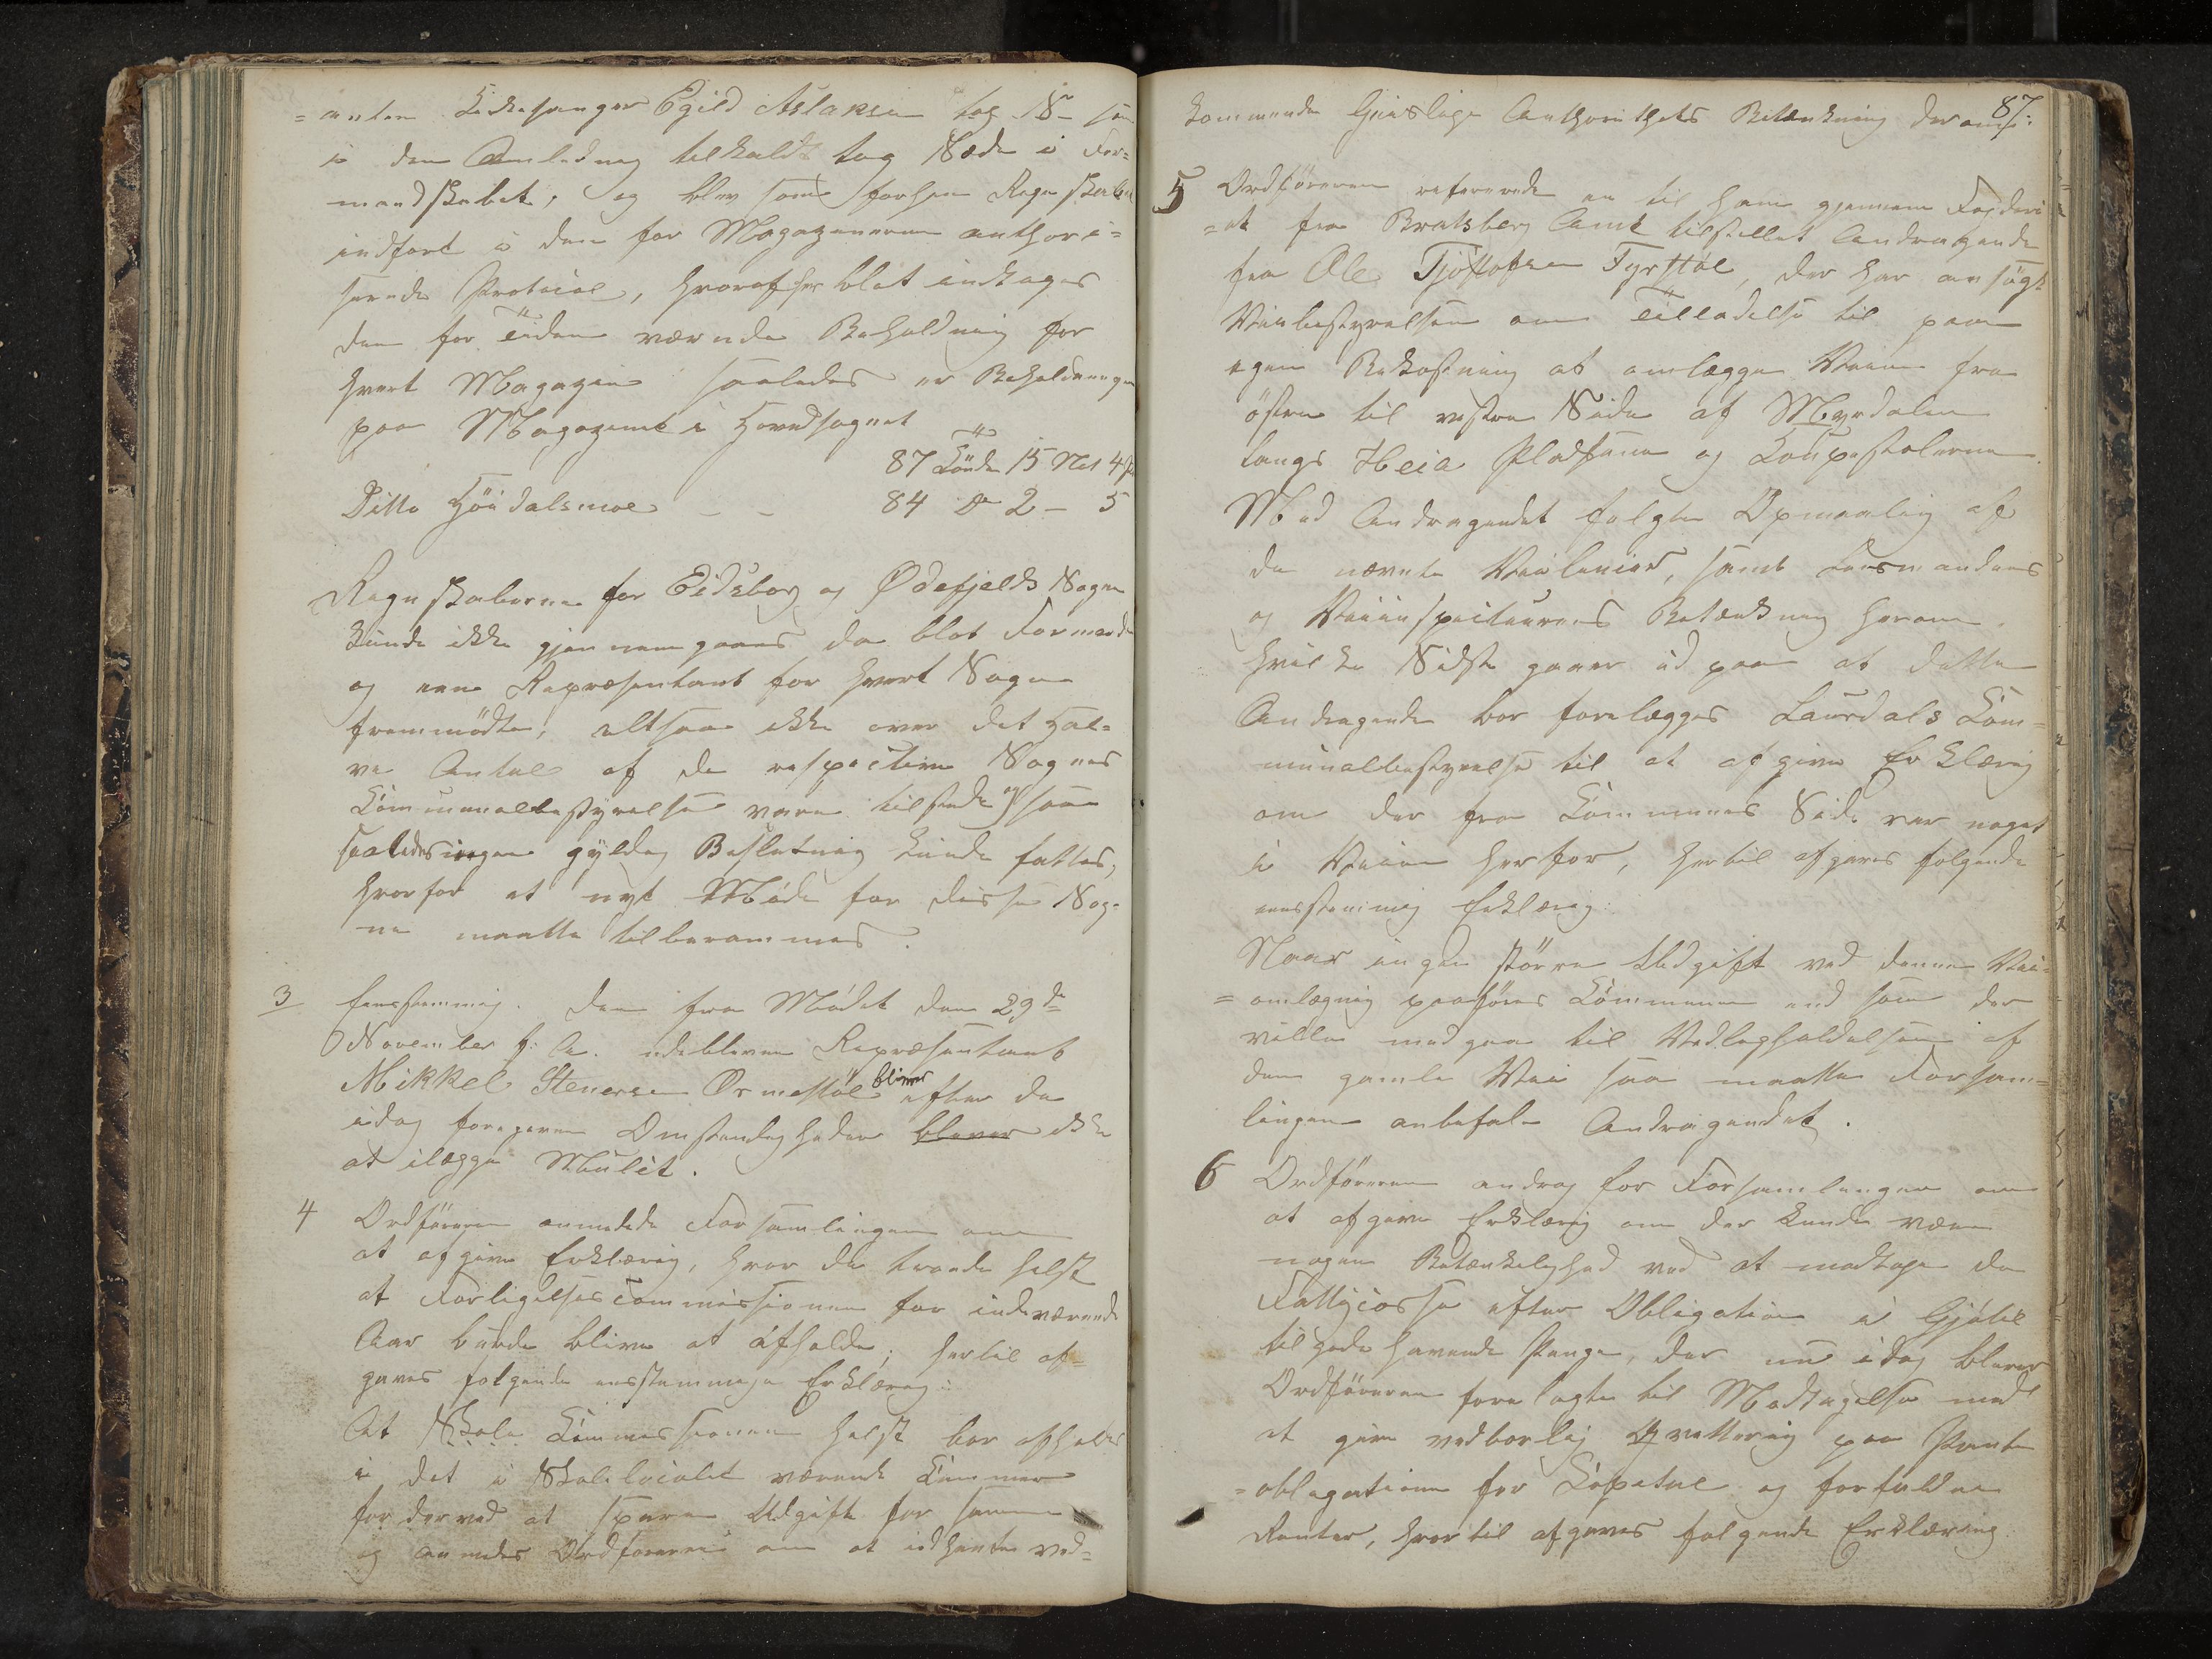 =anten Kirkesanger Egild Aslaksen tog S som
i den Anledning tilkaldt tog Sæde i For=
mandskabet, og blev som forhen Regnskaben
indført i den for Magazinerne authori=
serede Protocol, hvoraf her blot indtages
den for Tiden værende Beholdning for
hvert Magazin saaledes er Beholdningen
paa Magazinet i Hovedsognet
87 Tönde 15 Net 4
Ditto Höidalsmoe - - 84 do 2 - 5
Regnskaberne for Eidsborg og Ødefjelds Sogne
kunde ikke gjennemgaaes da blot Formænd
og een Repræsentant for hvert Sogn
fremmödte, altsaa ikke over det Hal=
ve Antal af de respective Sognes
Communalbestyrelse være tilstede og saa
saaledes ingen gyldig Beslutning kunde fattes,
hvorfor et nyt Möde for disse Sog=
ne maatte tilberammes.
3 Eensstemmig. Den fra Mödet den 29de
November f: A. udeblevne Repræsentant
Mikkel Stenersen Ormestöl bliver efter de
idag foregivne Omstændigheder blever ikke
at ilægge Mulct.
4 Ordföreren anmodede Forsamlingen om
at afgive Erklæring, hvor de troede helst
at Forligelsescommissionen for indeværende
Aar burde blive at afholde; hertil af=
gaves folgende eensstemmige Erklæring:
At Skole Commissionen helst bor afholdes
i det i Skolelocalet værende Kammer
for derved at spare Udgift for samme
og anmodes Ordföreren om at indhente ved=
87
kommende Geistlige Authoritets Betænkning derom.
5 Ordföreren refererede en til ham gjennem Fogderi
=et fra Bratsberg Amt tilstillet Andragende
fra Ole Tjöstofsen Tyrstöl, der har ansögt
Veibestyrelsen om Tilladelse til paa
egen Bekostning at omlægge Veien fra
östre til vestre Side af Myrdalen
langs Heia Pladsene og Koupestolerne.
Med Andragendet folgte Opmaaling af
de nævnte Veilinier, samt Lensmandens
og Veiinspecteurens Betænkning herom.
hvilke Sidste gaaer ud paa at dette
Andragende bor forelægges Laurdals Com=
munalbestyrelse til at afgive Erklæring
om der fra Communens Side var noget
i Veien herfor, hertil afgaves folgende
eensstemmig Erklæring:
Naar ingen större Udgift ved denne Vei=
=omlægning paaföres Communen end som der
ville medgaa til Vedligholdelsen af
den gamle Vei saa maatte Forsam=
lingen anbefale Andragendet.
6 Ordföreren androg for Forsamlingen om
at afgive Erklæring om der kunde være
nogen Betænkelighed ved at modtage de
Fattigcasse efter Obligation i Gjötil
tilgodehavende Penge, der nu idag blever
Ordföreren forelagte til Modtagelse med
at give vedborlig Qvittering paa Pante
=obligationen for Capital og forfaldne
Renter, hvortil afgaves folgende Erklæring